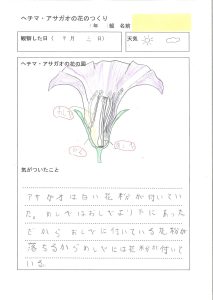 ヘチマ・アサガオの花のつくり
年 組 名前
観察した日( 月 日) 天気
ヘチマ・アサガオの花の図
気がついたこと
アサガオは白い花粉が付いてい
た。めしべはおしべより下にあった
だから おしべに付いている花粉が
落ちるからめしべには花粉が付いて
いる。